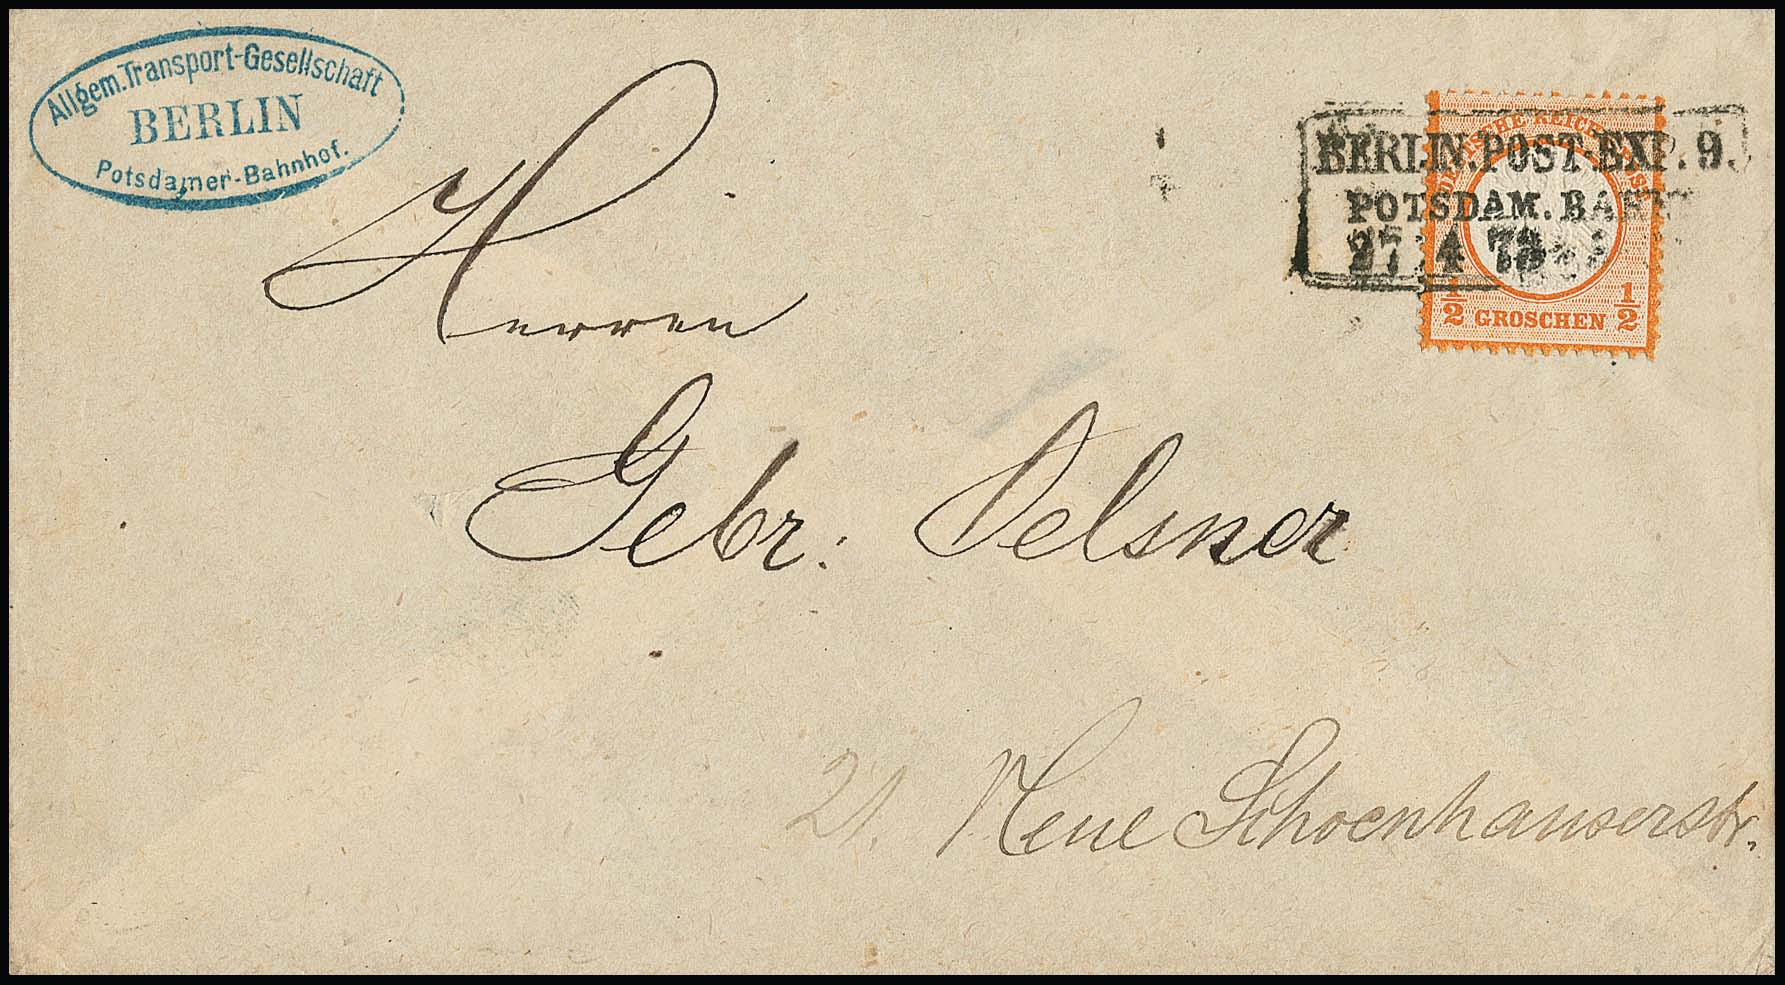 Allgem. Transport-Gesellschaft
BERLIN
Potsdamer-Bahnhof.
BERLIN.POST-EXP. 9.
POTSDAM. BAHN
27 4
½ GROSCHEN ½
Herren
Gebr: Oelsner
21. Neue Schoenhauserstr.